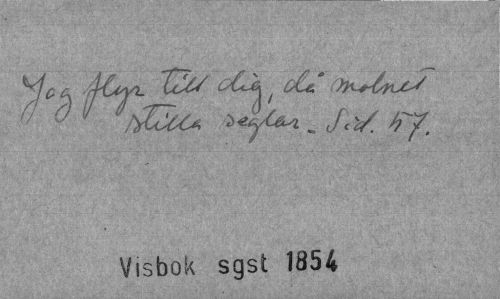 Jag flyr till dig, då molnet
stilla seglar. Sid. 57.
Visbok sgst 1854